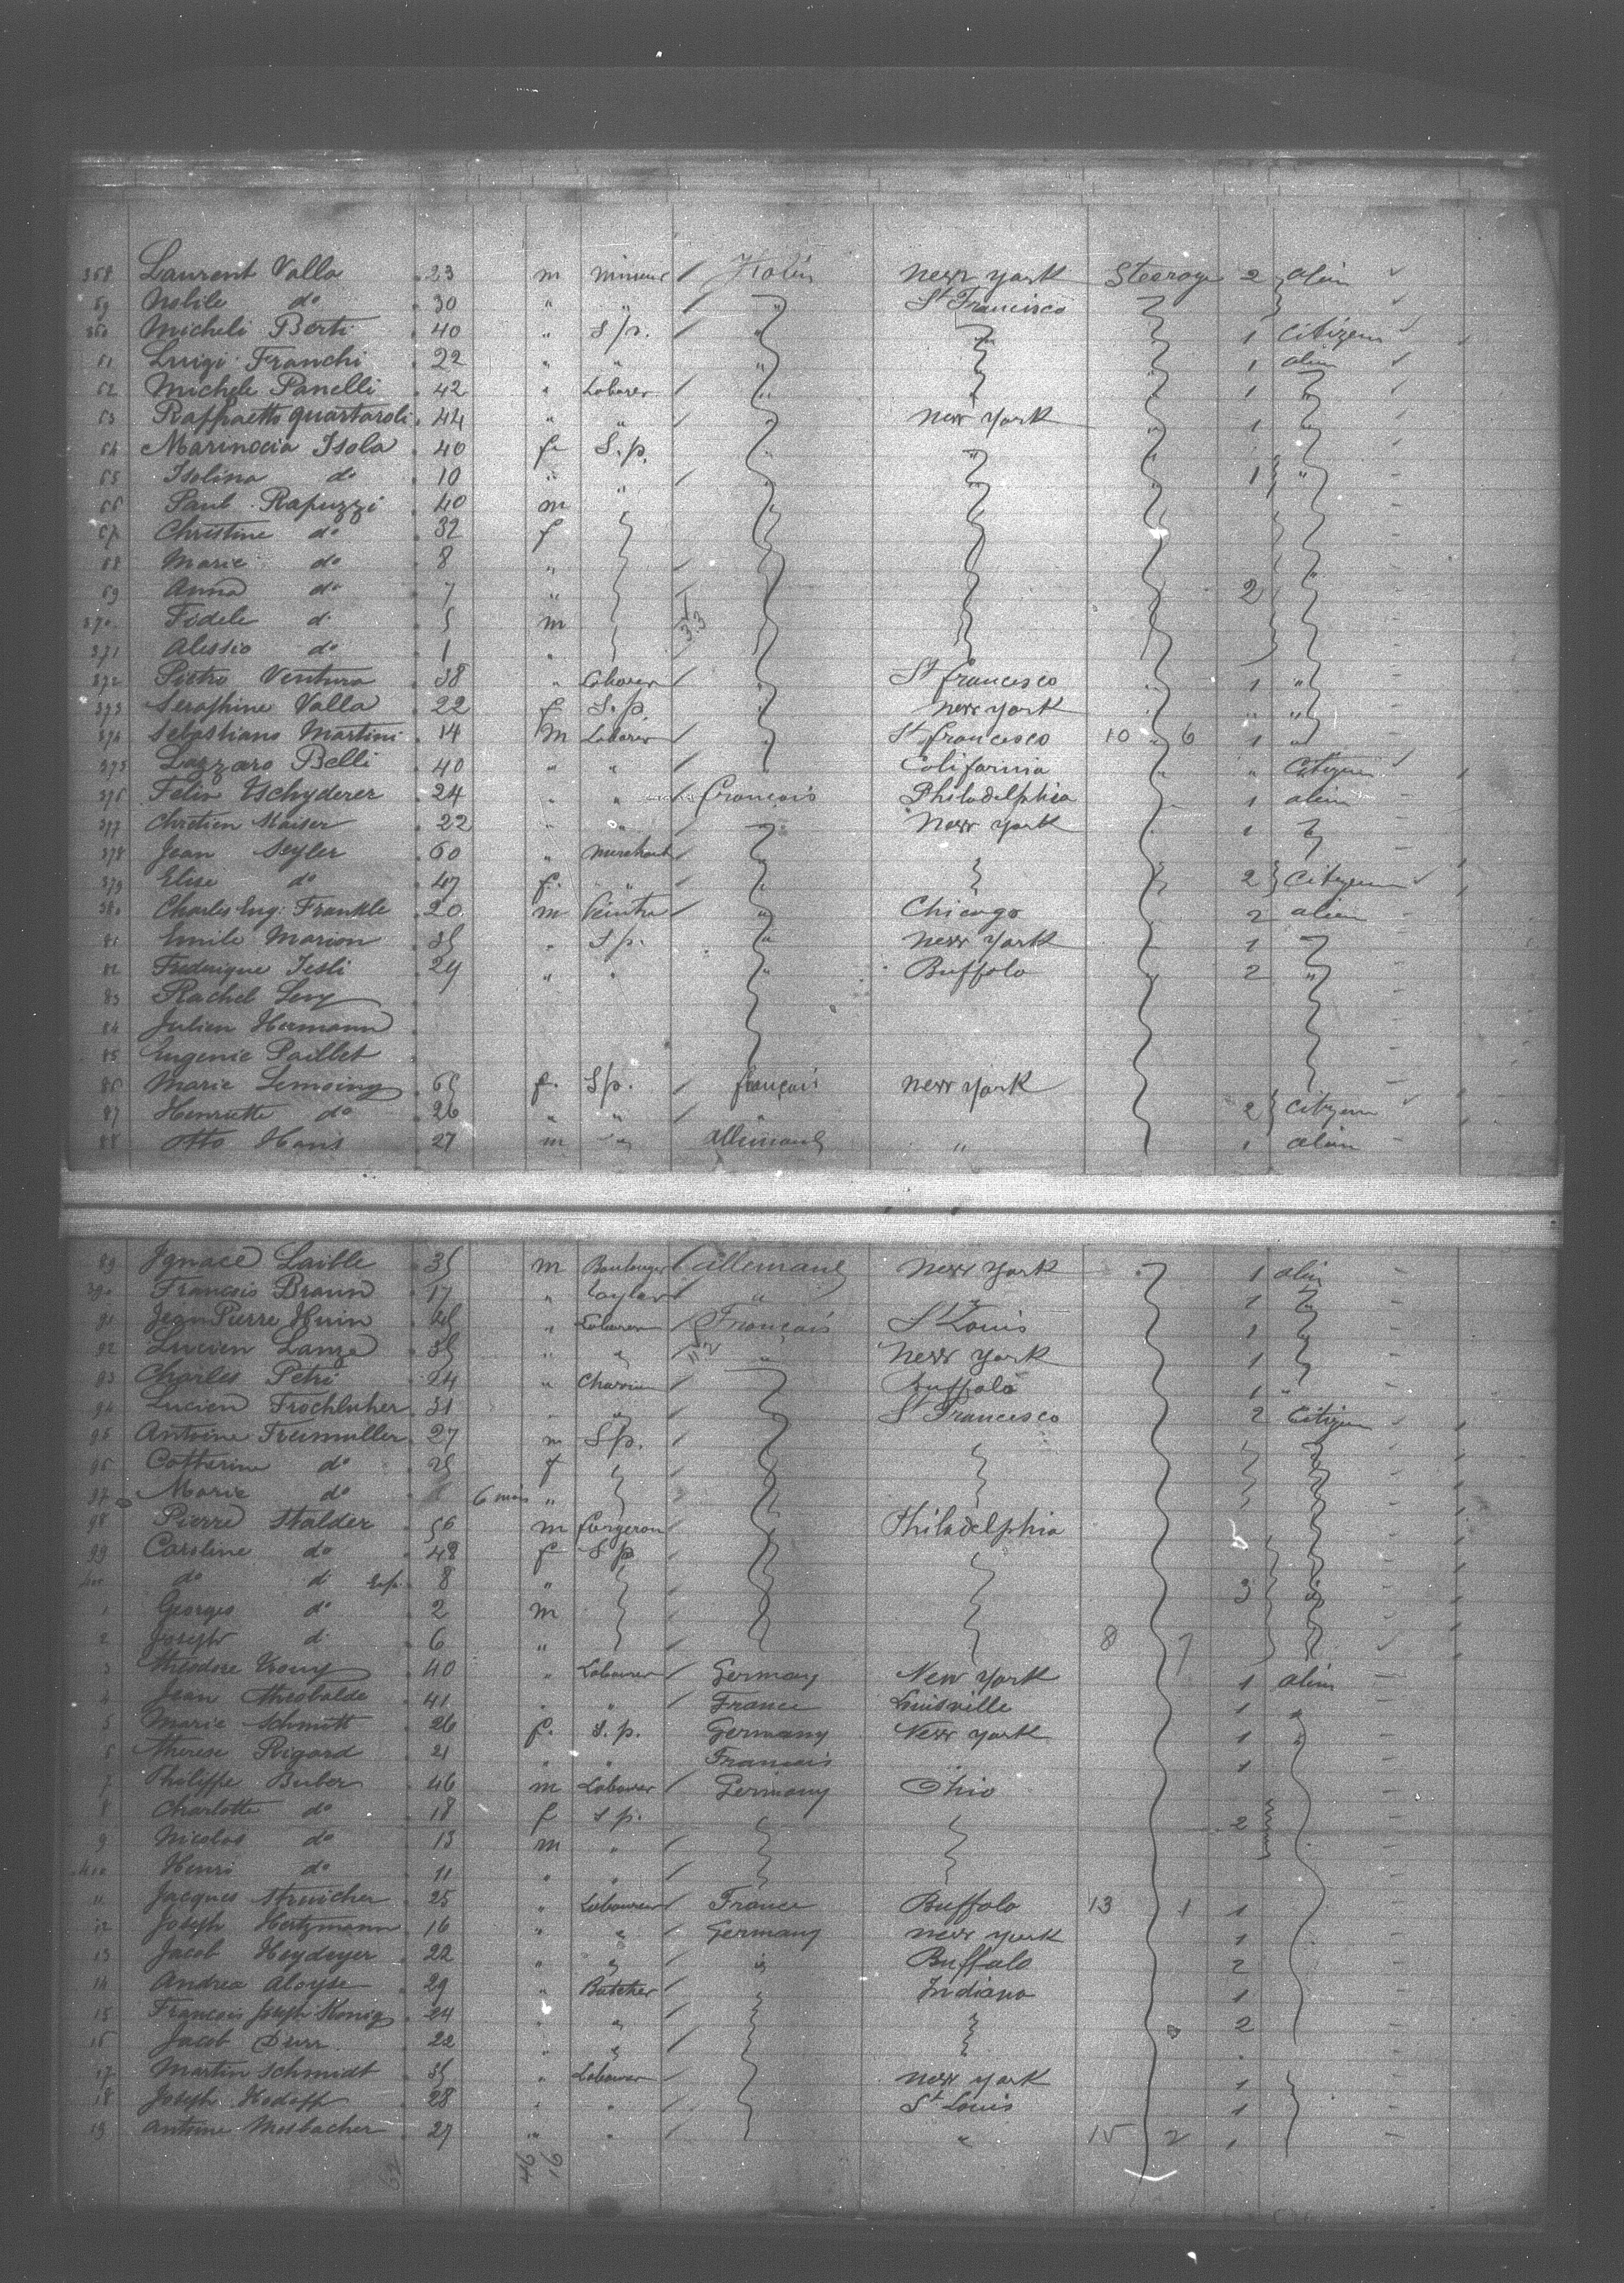 358 Laurent Valla 23 m mineur Italien New York Steerage 2 alien
59 Nobile do 30 " " " St Francisco
360 Micheli Berti 40 " S/p. " 1 Citizen
61 Luigi Franchi 22 " " " 1 alien
62 Michele Panelli 42 " Laborer " 1 "
63 Raffaetto Quartaroli 44 " " " New York " 1
64 Marinoccia Isola 40 f S.p. " "
65 Isolina do 10 " " " 1 "
66 Paul Rapuzzi 40 m
67 Christine do 32 f
68 Marie do 8 "
69 Anna do 7 " 2
370 Fidele d. 5 m
371 Alessio do 1 "
372 Pietro Ventura 38 " Laborer " St francesco " 1 "
373 Seraphine Valla 22 f S.p. " New York " "
374 Sebastiano Martini 14 m Laborer " St francesco 10 6 1 "
375 Lazzaro Belli 40 " " California " " Citizen
376 Felix Tschyderer 24 " " français Philadelphia 1 alien
377 Chretien Maiser 22 " " New York 1
378 Jean Seyler 60 " Merchant
379 Elise do 47 f. " 2 Citizen
380 Charles Eug. Frankle 20 m Peintre " Chicago 2 alien
81 Emile Marion 35 " S/p. " New York 1
82 Frederique Jesli 24 " " " Buffalo 2 "
83 Rachel Levy
84 Julien Hermann
85 Eugenie Paillet
86 Marie Lemoing 65 f. S/p. français New York
87 Henriette do 26 " " 2 Citizen
88 Otto Hans 27 m " allemand " 1 alien
89 Ignace Laible 35 m Boulanger allemand New York 1 alien
390 Francois Braun 17 " Taylor " 1
91 Jean Pierre Huin 45 " Labourer Français St Louis 1
92 Lucien Lanze 35 " " " New York 1
93 Charles Petri 24 " Buffalo 1 "
94 Lucien 31 " " St Francesco 2 Citizen
95 Antoine Freimuller 27 m S/p.
96 Catherine do 25 f
97 Marie do 6 mois "
98 Pierre Stalder 56 m forgeron Philadelphia
99 Caroline do 48 f S p
400 do d 8 " 3 "
1 Georges do 2 m
2 Joseph d. 6 " 8 7
3 Théodore 40 " Labourer Germany New York 1 alien
4 Jean Theobalde 41 " " France Louisville 1 "
5 Marie Schmitt 26 f. S.p. Germany New York 1 "
6 Therese Rigard 21 " " Francais 1
7 Philippe Buber 46 m Labourer Germany Ohio
8 Charlotte do 18 f S p. 2
9 Nicolas do 13 m "
410 Henri do 11 " "
11 Jacques Streicher 25 " Labourer France Buffalo 13 1 1
12 Joseph Hertzmann 16 " " Germany New York 1
13 Jacob Heydeyer 22 " " " Buffalo 2
14 Andrea Aloyse 29 " Butcher Indiana 1
15 François Joseph Konig 24 " " 2
16 Jacob Durr 22 " "
17 Martin Schmidt 35 " Labourer New York 1
18 Joseph Hodapp 28 " " St Louis 1
19 Antoine Mosbacher 27 " " " 15 2 1